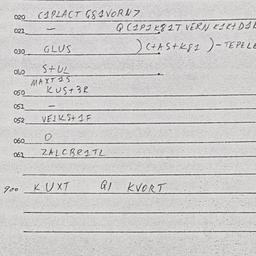 020 C1PLACT G81VORN7
021 — Q C1P1K81T VERN K1K+D1K
030 GLUS )(+AS+K81 )-TEPELE
040 S+UL
MAXT1S
050 KUS+3R
051 —
052 VE1KS+1F
060 O
061 ZALCBR1TL
900 KUXT Q1 KVORT